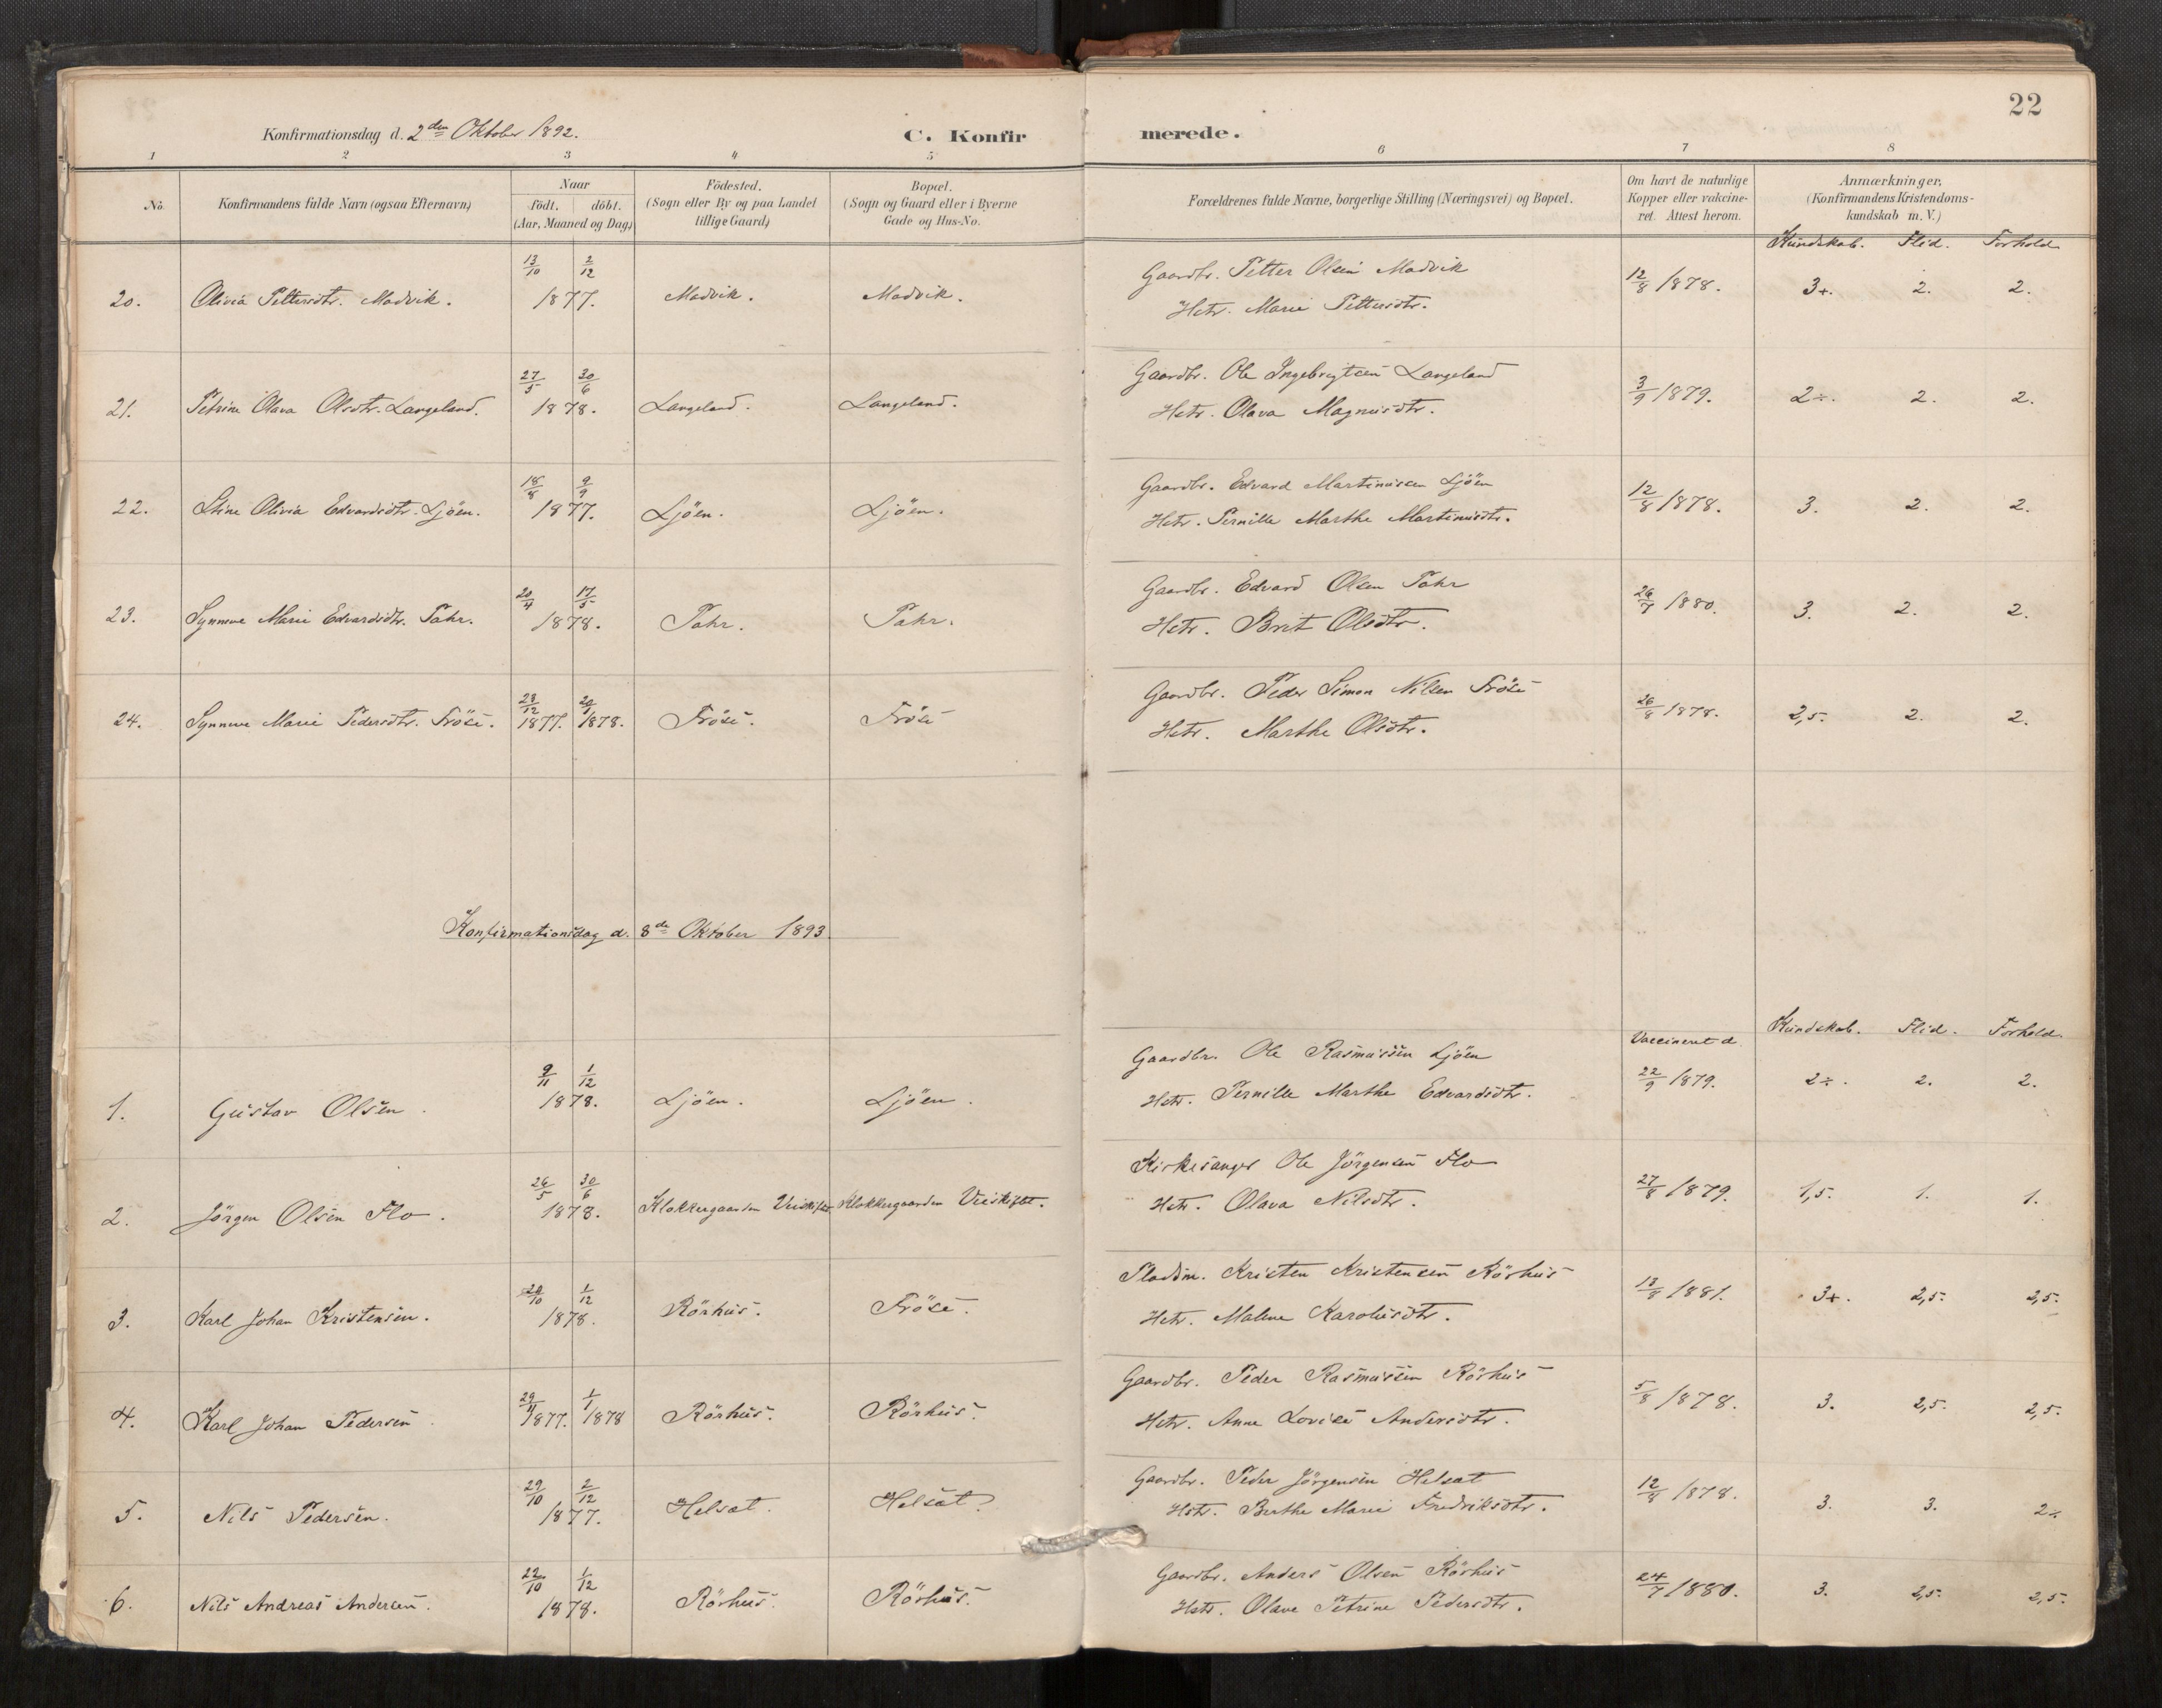 22
Konfirmationsdag d. 2den Oktober 1892. C. Konfir merede.
1 2 3 4 5 6 7 8
No. Konfirmandens fulde Navn (ogsaa Efternavn) Naar födt. döbt. (Aar, Maaned og Dag) Födested. (Sogn eller By og paa Landet tillige Gaard) Bopæl. (Sogn og Gaard eller i Byerne Gade og Hus-No. Forældrenes fulde Navne, borgerlige Stilling (Næringsvei) og Bopæl. Om havt de naturlige Kopper eller vakcineret. Attest herom. Anmærkninger, (Konfirmandens Kristendomskundskab m. V.)
Kundskab. Flid. Forhold
20. Olivia Pettersdtr. Madvik. 13/10 2/12 1877. Madvik. Madvik. Gaardbr. Petter Olsen Madvik 12/8 1878. 3+. 2. 2.
Hstr. Marie Pettersdtr.
21. Petrine Olava Olsdtr. Langeland. 27/5 30/6 1878. Langeland. Langeland. Gaardbr. Ole Ingebrigtsen Langeland 3/9 1879. 2÷. 2. 2.
Hstr. Olava Magnusdtr.
22. Stine Olivia Edvardsdtr. Ljöen. 18/8 9/9 1877. Ljöen. Ljöen. Gaardbr. Edvard Martinusen Ljöen 12/8 1878. 3. 2. 2.
Hstr. Pernille Marthe Martinusdtr.
23. Synneve Marie Edvardsdtr. Tahr. 20/4 17/5 1878. Tahr. Tahr. Gaardbr. Edvard Olsen Tahr 26/7 1880. 3. 2. 2.
Hstr. Brit Olsdtr.
24. Synneve Marie Pedersdtr. Fröse. 28/12 1877. 20/1 1878. Fröse. Fröse Gaardbr. Peder Simon Nilsen Fröse 26/8 1878. 2,5. 2. 2.
Hstr. Marthe Olsdtr.
Konfirmationsdag d. 8de Oktober 1893.
Vaccineret d. Kundskab. Flid. Forhold.
1. Gustav Olsen. 9/11 1/12 1878. Ljöen. Ljöen. Gaardbr. Ole Rasmussen Ljöen 22/9 1879. 2÷. 2. 2.
Hstr. Pernille Marthe Edvardsdtr.
2. Jörgen Olsen Flo. 26/5 30/6 1878. Klokkergaarden Veiskiftet Klokkergaarden Veiskiftet. Kirkesanger Ole Jörgensen Flo 27/8 1879. 1,5. 1. 1.
Hstr. Olava Nilsdtr.
3. Karl Johan Kristensen. 20/10 1/12 1878. Rörhus. Fröse. Pladsm. Kristen Kristensen Rörhus 13/8 1881. 3+. 2,5. 2,5.
Hstr. Malene Karolusdtr.
4. Karl Johan Pedersen 29/11 1877. 1/1 1878 Rörhus. Rörhus. Gaardbr. Peder Rasmussen Rörhus 5/8 1878. 3. 2,5. 2,5.
Hstr. Anne Lovise Andersdtr.
5. Nils Pedersen. 29/10 2/12 1877. Helsat. Helsat. Gaardbr. Peder Jörgensen Helsat 12/8 1878. 3. 3. 2÷
Hstr. Berthe Marie Fredriksdtr.
6. Nils Andreas Andersen. 22/10 1/12 1878. Rörhus. Rörhus. Gaardbr. Anders Olsen Rörhus 24/7 1880. 3. 2,5. 2,5.
Hstr. Olave Petrine Pedersdtr.